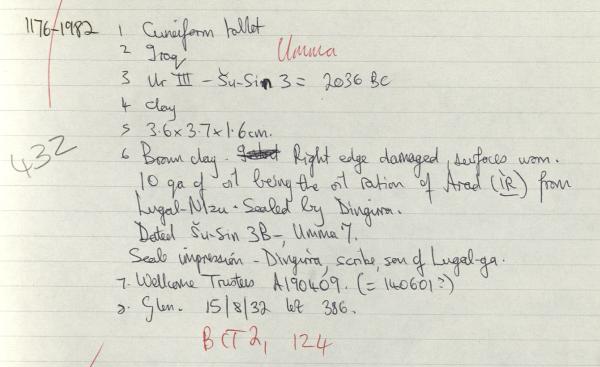 1176-1982 1 Cuneiform tablet
2 Iraq Umma
3 Ur III - Šu-Sin 3 = 2036 BC
4 clay
5 3.6 x 3.7 x 1.6 cm.
6 Brown clay. Right edge damaged, surfaces worn.
10 qa of oil being the oil ration of Arad (ÌR) from
Lugal-Nizu. Sealed by Dingirra.
Dated Šu-Sin 3B-, Umma 7.
Seal impression - Dingirra, scribe, son of Lugal-ga.
7. Wellcome Trustees A190409. (= 140601?)
8. Glen. 15/8/32 lot 386.
432
BCT 2, 124